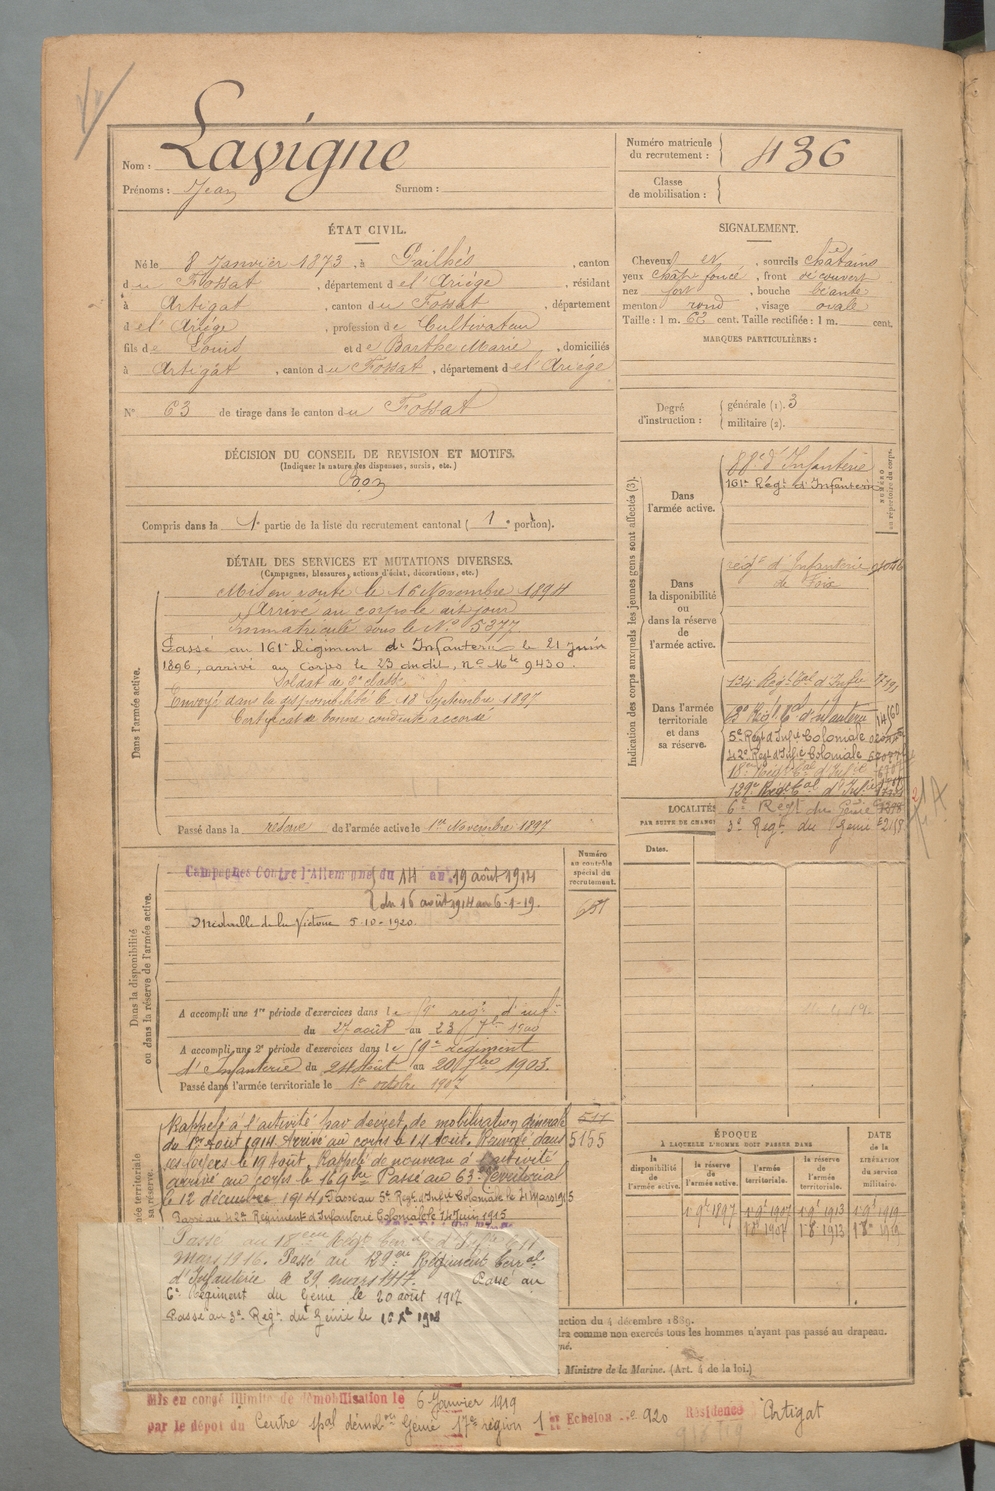 Nom : Lavigne
Prénoms : Jean Surnom :
Numéro matricule du recrutement : 436
Classe de mobilisation :
ÉTAT CIVIL.
Né le 8 Janvier 1873, à Pailhès, canton
du Fossat, département de l'Ariège, résidant
à Artigat, canton du Fossat, département
de l'Ariège, profession de Cultivateur
fils de Louis et de Barthe Marie, domiciliés
à Artigat, canton du Fossat, département de l'Ariège
N° 63 de tirage dans le canton du Fossat
SIGNALEMENT.
Cheveux et, sourcils châtains
yeux chât. foncé, front découvert
nez fort, bouche béante
menton rond, visage ovale
Taille : 1 m. 62 cent. Taille rectifiée : 1 m. cent.
MARQUES PARTICULIÈRES :
Degré d'instruction : générale (1). 3
militaire (2).
DÉCISION DU CONSEIL DE REVISION ET MOTIFS.
(Indiquer la nature des dispenses, sursis, etc.)
Bon
Compris dans la 1e partie de la liste du recrutement cantonal ( 1e portion).
DÉTAIL DES SERVICES ET MUTATIONS DIVERSES.
(Campagnes, blessures, actions d'éclat, décorations, etc.)
Dans l'armée active.
Mis en route le 16 Novembre 1894
Arrivé au corps le dit jour
Immatriculé sous le N° 5377
Passé au 161e Régiment d'Infanterie le 21 juin
1896, arrivé au corps le 23 dudit, no Mle 9430.
Soldat de 2e classe
Envoyé dans la disponibilité le 18 Septembre 1897
Certificat de bonne conduite accordé
Passé dans la réserve de l'armée active le 1er Novembre 1897
Indication des corps auxquels les jeunes gens sont affectés (3).
NUMÉRO au répertoire du corps.
Dans l'armée active.
88e d'Infanterie
161e Régt d'Infanterie
Dans la disponibilité ou dans la réserve de l'armée active.
régt d'Infanterie
de Foix
Dans l'armée territoriale et dans sa réserve.
134 Régt tal d'Infie
5e Régt d'Infie Coloniale
42e Régt d'Infie Coloniale
18e Régt tal d'Infie
129e Régt tal d'Infie
6e Régt du Génie
3e Regt du Génie
LOCALITÉS
PAR SUITE DE CHANG
Dates.
Dans la disponibilité ou dans la réserve de l'armée active.
Numéro au contrôle spécial du recrutement.
Campagnes Contre l'Allemagne du 14 au 19 août 1914
du 16 août 1914 au 6-1-19.
Médaille de la Victoire 5-10-1920
A accompli une 1re période d'exercices dans le régt d'inf.
du 27 août au 23 7bre 1900
A accompli une 2e période d'exercices dans le régiment
d'Infanterie du 24 Août au 20 7bre 1903.
Passé dans l'armée territoriale le 1er octobre 1907
Rappelé à l'activité par décret de mobilisation générale
du 1er Août 1914. Arrivé au corps le 14 Août. Renvoyé dans
ses foyers le 19 Août. Rappelé de nouveau à l'activité
arrivé au corps le 16 9bre Passé au 63e Territorial
le 12 décembre 1914. Passé au 5e Regt d'Infie Coloniale le 21 Mars 1915
Passé au 42e Régiment d'Infanterie Coloniale le 14 Juin 1915
517
5155
Passé au 18eme Régt Terr al d'Infie le 11
Mars 1916. Passé au 129eme Régiment Terral
d'Infanterie le 29 mars 1917. Passé au
6e Régiment du Génie le 20 août 1917
Passé au 3e Regt du Génie le 1e Xbre 1918
ÉPOQUE
À LAQUELLE L'HOMME DOIT PASSER DANS
DATE de la LIBÉRATION du service militaire.
la disponibilité de l'armée active.
la réserve de l'armée active.
l'armée territoriale.
la réserve de l'armée territoriale.
1 9e 1897 1 9e 1907 1 9e 1913 1 9e 1919
1 8e 1907 1 8e 1913 1 8e 1919
uction du 4 décembre 1889.
dra comme non exercés tous les hommes n'ayant pas passé au drapeau.
Ministre de la Marine. (Art. 4 de la loi.)
Mis en congé illimité de démobilisation le 6 Janvier 1919
par le dépôt du Centre spal démob Génie 17e région 1er Echelon 920 Résidence Artigat